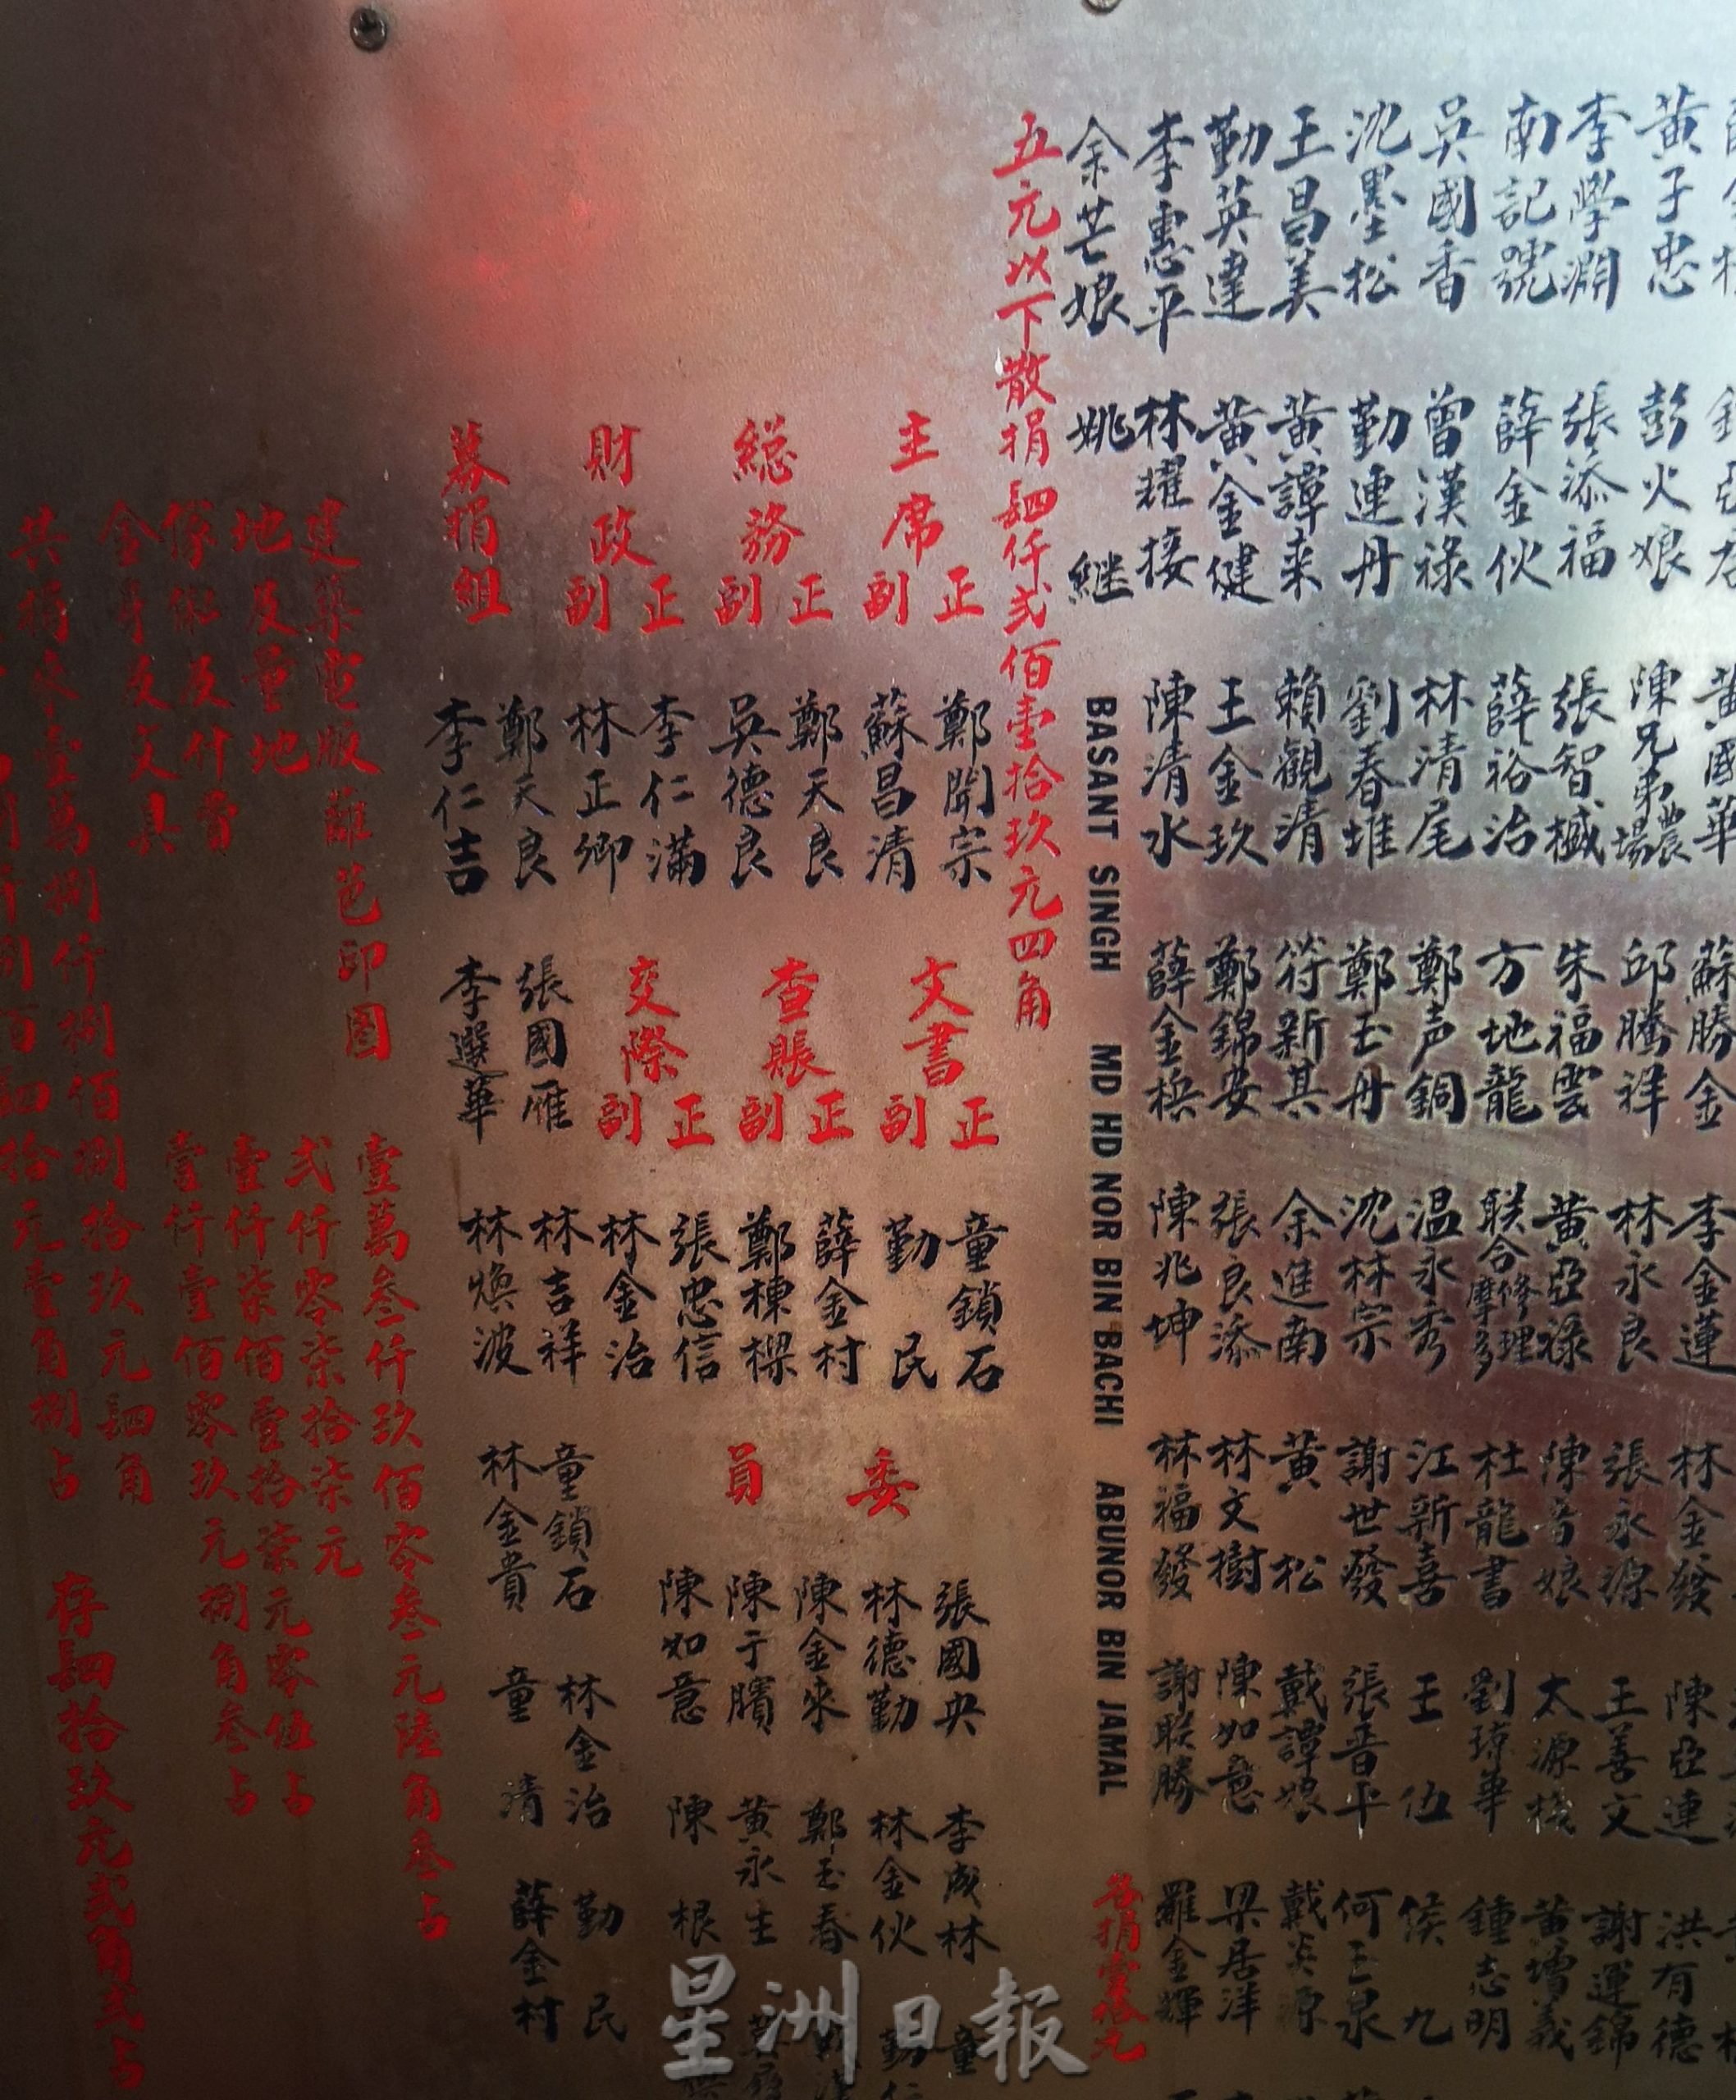 黃子忠 彭火娘 陳兄弟農場 邱騰祥 林永良 張永源 王善文 謝運錦
李學淵 張添福 張智楲 朱福雲 黃亞祿 陳音娘 太源棧 黃增義
南記號 薛金伙 薛裕治 方地龍 联合摩多修理 杜龍書 劉琼華 鍾志明
吳國香 曾漢祿 林清尾 鄭声銅 温永秀 江新喜 王伍 侯九
沈墨松 勤連丹 劉春堆 鄭玉丹 沈林宗 謝世發 張晋平 何玉泉
王昌美 黃譚来 賴觀清 符新其 余進南 黃松 戴譚娘 戴炎源
勤英達 黃金健 王金玖 鄭錦安 張良添 林文樹 陳如意 梁居洋
李惠平 林耀接 陳清水 薛金梹 陳兆坤 林福發 謝联勝 羅金輝
余芒娘 姚継 BASANT SINGH MD HD NOR BIN BACHI ABUNOR BIN JAMAL 各捐壹拾元
五元以下散捐肆仟弍佰壹拾玖元四角
主席 正 鄭開宗
副 蘇昌清
総務 正 鄭天良
副 吳德良
財政 正 李仁滿
副 林正卿
募捐組 鄭天良 張國雁 林吉祥 童鎖石 林金治 勤民
李仁吉 李選華 林煥波 林金貴 童清 薛金村
文書 正 童鎖石
副 勤民
查賬 正 薛金村
副 鄭棟樑
交際 正 張忠信
副 林金治
委員
張國央 李成林
林德勤 林金伙
陳金來 鄭玉春
陳于臏 黃永生
陳如意 陳根
建築電版蘺芭印圖 壹萬叁仟玖佰零叁元陸角叁占
地及量地 弍仟零柒拾柒元
傢俬及什費 壹仟柒佰壹拾柒元零伍占
金身及文具 壹仟壹佰零玖元捌角叁占
共捐來壹萬捌仟捌佰捌拾玖元肆角
捌佰肆拾元壹角捌占 存肆拾玖元弍角弍占
星洲日報